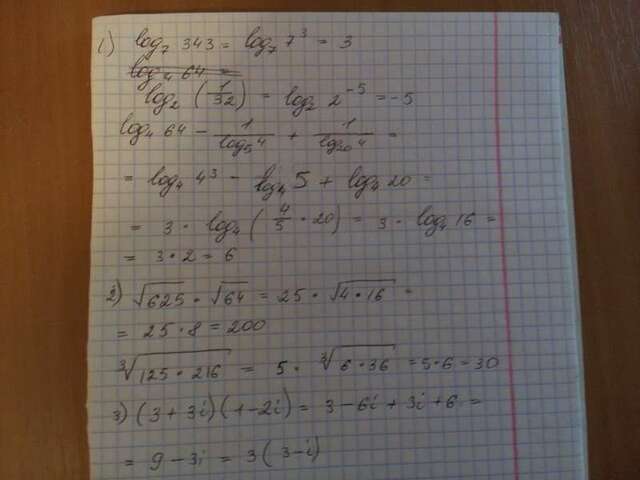 1) log₇ 343 = log₇ 7³ = 3
log₄ 64 =
log₂ (1/32) = log₂ 2⁻⁵ = -5
log₄ 64 - 1/log₅ 4 + 1/log₂₀ 4 =
= log₄ 4³ - log₄ 5 + log₄ 20 =
= 3 · log₄ (4/5 · 20) = 3 · log₄ 16 =
= 3 · 2 = 6
2) √625 · √64 = 25 · √4·16 =
= 25 · 8 = 200
∛125·216 = 5 · ∛6·36 = 5·6 = 30
3) (3+3i)(1-2i) = 3-6i+3i+6 =
= 9-3i = 3(3-i)